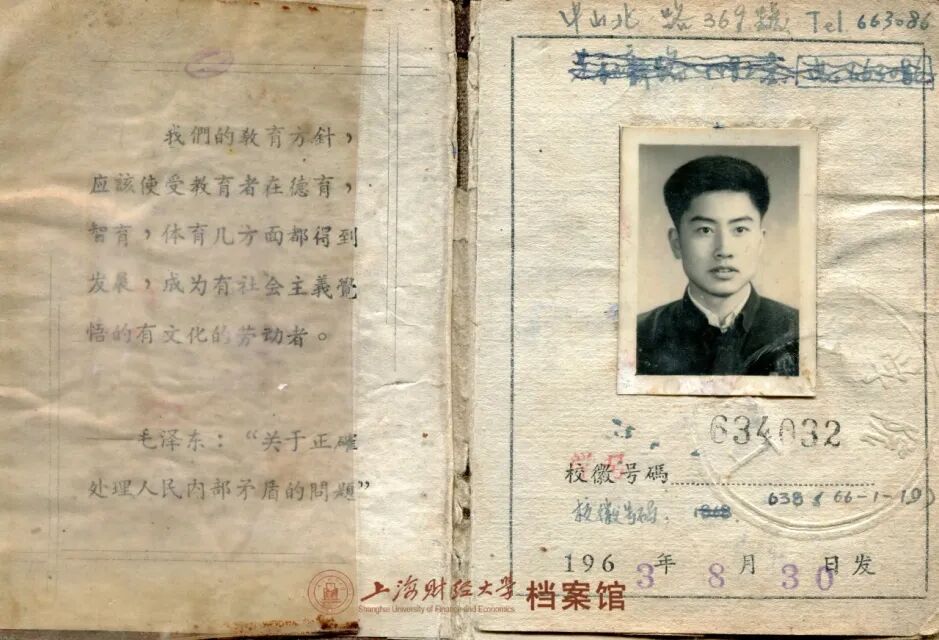 我們的教育方針，
应該使受教育者在德育，
智育，体育几方面都得到
发展，成为有社会主義覺
悟的有文化的劳动者。
毛泽东：“关于正確
处理人民内部矛盾的問題”
中山北路369號 Tel 663086
634032
校徽号碼
638 (66-1-19)
校徽号码
1963年8月30日发
上海财经大学 档案馆
Shanghai University of Finance and Economics